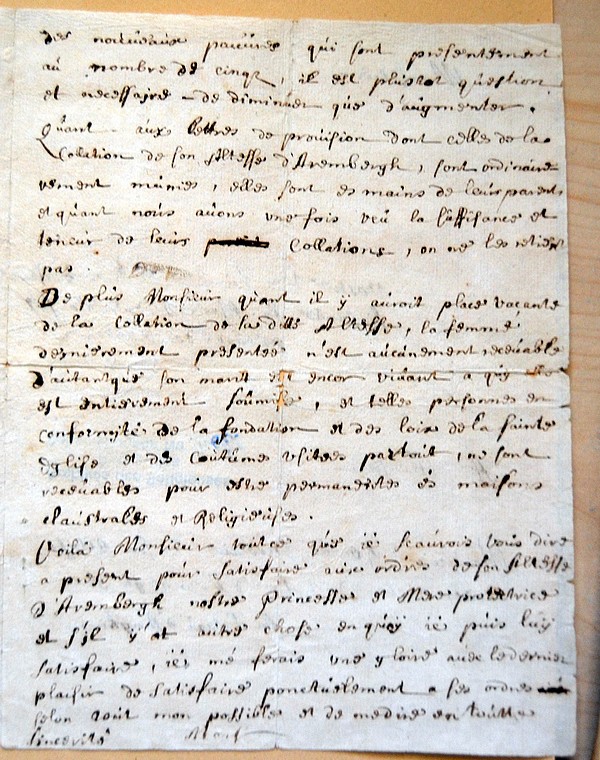 des nouueaux pauures qui sont presentement
au nombre de cinq, il est plustot question
et necessaire de diminuer que d'augmenter.
Quant aux lettres de prouision dont celles de la
Collation de son Altesse d'Arembergh, sont ordinaire
vement munies, elles sont es mains de leur parents
et quant nous auons vne fois veu la suffisance et
teneur de leurs Collations, on ne les retient
pas.
De plus Monsieur quant il y auroit place vacante
de la Collation de la ditte Altesse, la femme
dernierement presentée n'est aucunement receuable
d'autant que son marit est encor viuant a qui elle
est entierement soûmise, et telles personnes en
conformité de la fondation et des loix de la sainte
Eglise et des Coutûmes vsitees partout, ne sont
receuables pour estre permanentes és maisons
claustrales et Religieuses.
Voilà Monsieur tout ce que ie scaurois vous dire
a present pour satisfaire aux ordres de son Altesse
d'Arembergh nostre Princesse et Mere protectrice
et s'il y at autre chose en quoy ie puis luy
satisfaire, ie mé ferais vne gloire auec le dernier
plaisir de satisfaire ponctuelement a ses ordres
selon tout mon possible et de me dire en toutte
sincerité